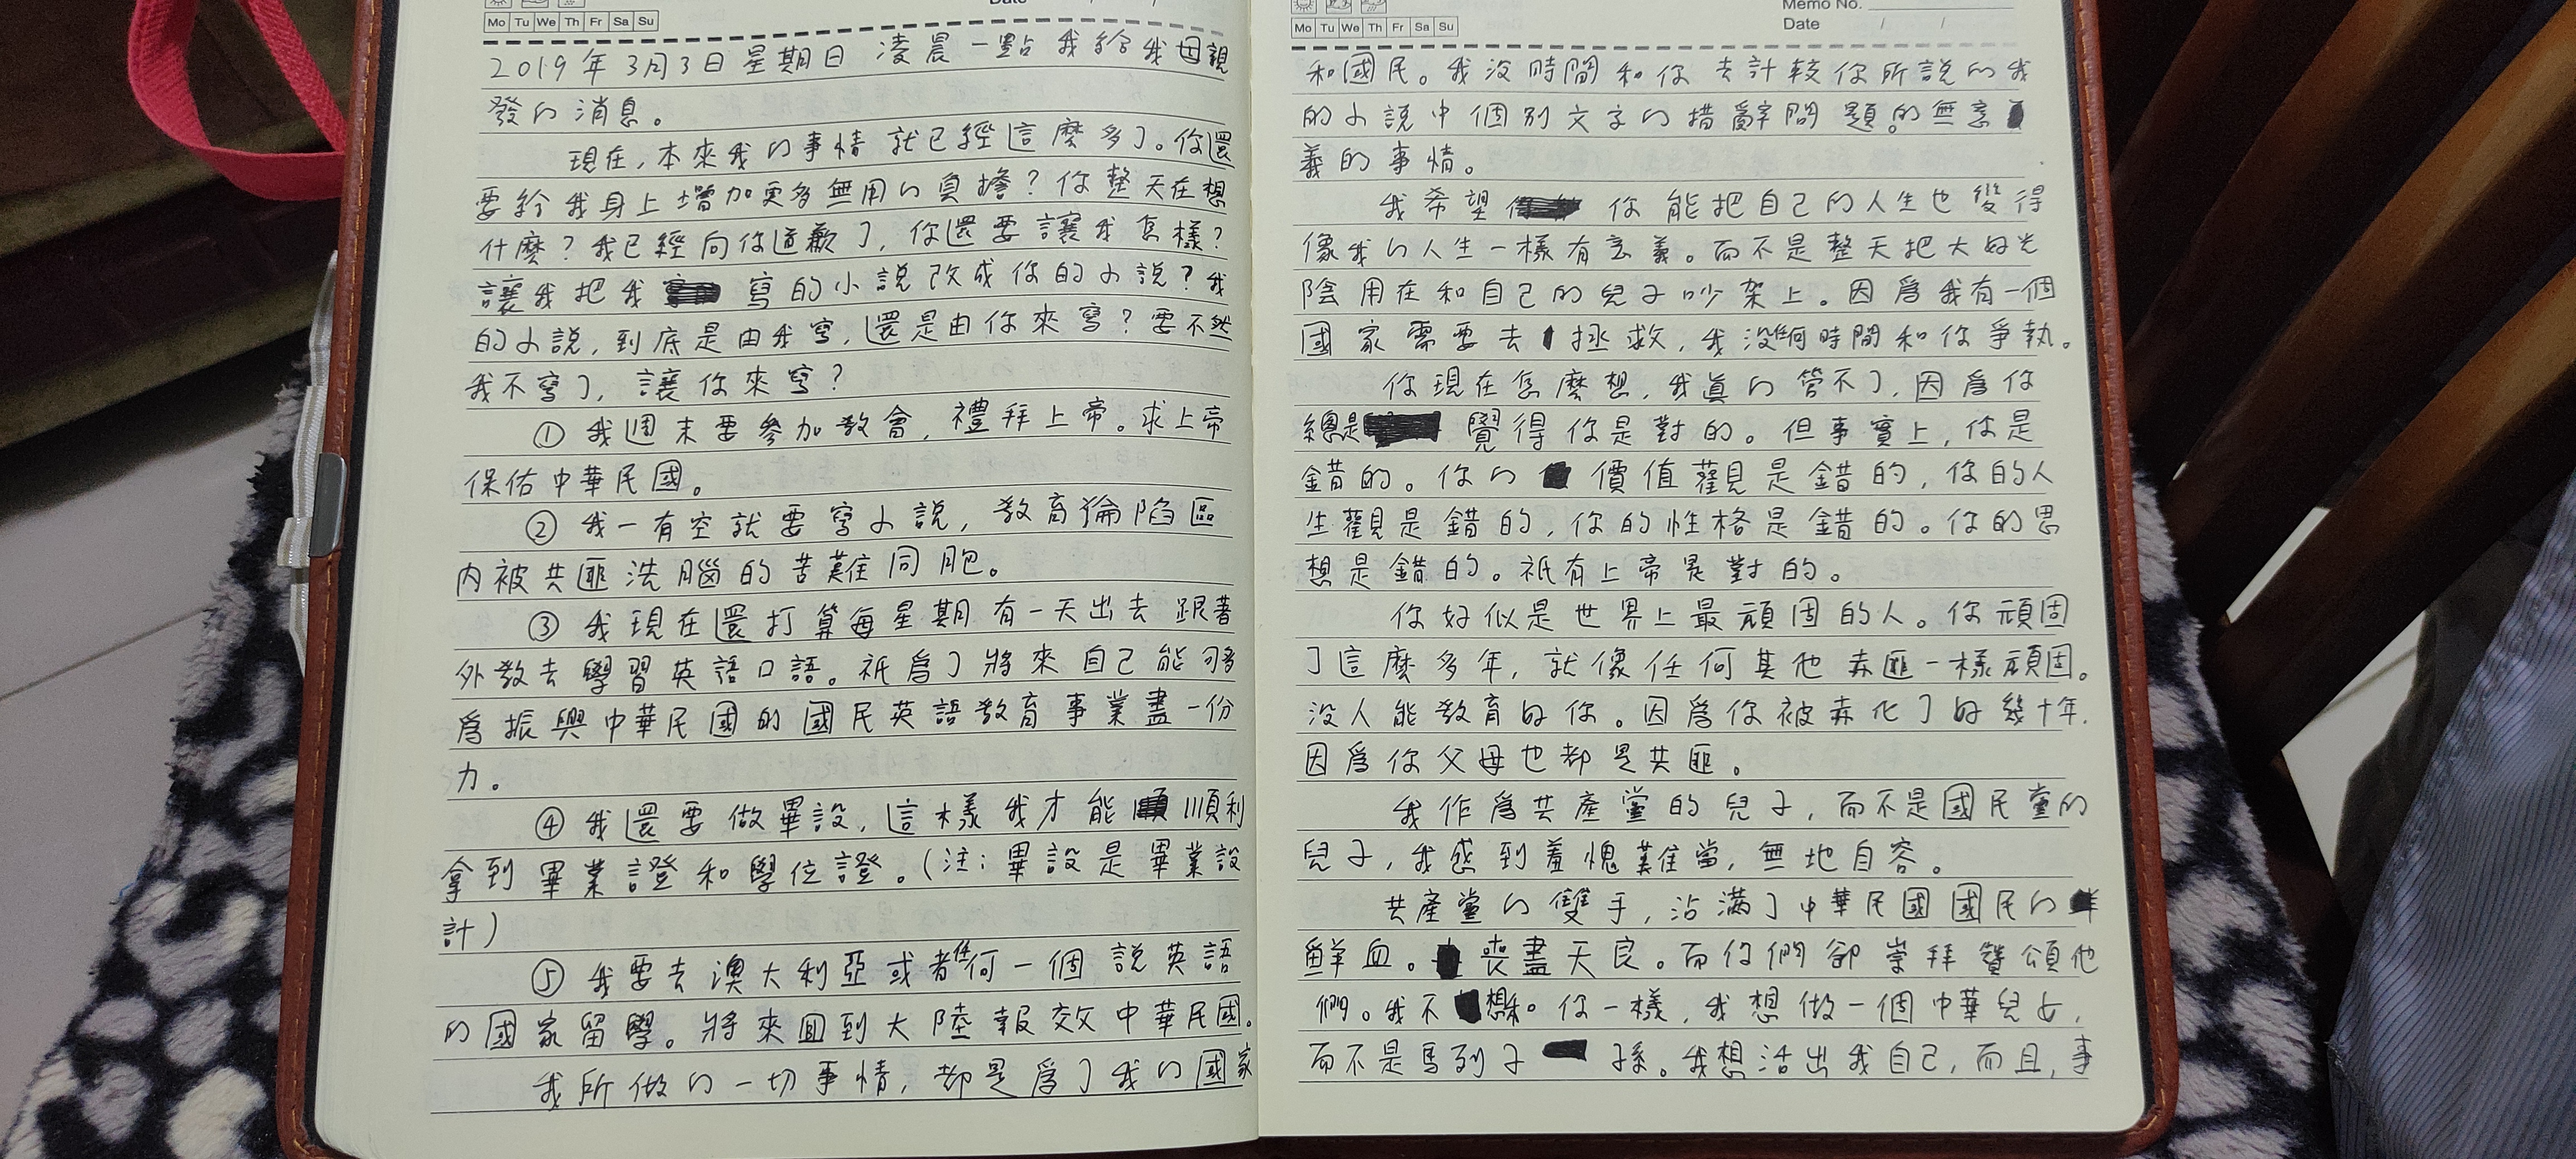 Mo Tu We Th Fr Sa Su
Date / /
2019年3月3日星期日 凌晨一點我給我母親
發的消息。
現在,本來我的事情就已經這麼多了。你還
要給我身上增加更多無用的負擔?你整天在想
什麼?我已經向你道歉了,你還要讓我怎樣?
讓我把我寫的小說改成你的小說?我
的小說,到底是由我寫,還是由你來寫?要不然
我不寫了,讓你來寫?
① 我週末要參加教會,禮拜上帝。求上帝
保佑中華民國。
② 我一有空就要寫小說,教育淪陷區
内被共匪洗腦的苦難同胞。
③ 我現在還打算每星期有一天出去跟著
外教去學習英語口語。祇爲了將來自己能夠
爲振興中華民國的國民英語教育事業盡一份
力。
④ 我還要做畢設,這樣我才能順利
拿到畢業證和學位證。(注:畢設是畢業設
計)
⑤ 我要去澳大利亞或者任何一個說英語
的國家留學。將來回到大陸報效中華民國。
我所做的一切事情,都是爲了我的國家
Mo Tu We Th Fr Sa Su
Memo No.
Date / /
和國民。我沒時間和你去計較你所說的我
的小說中個別文字的措辭問題。的無意
義的事情。
我希望你能把自己的人生也變得
像我的人生一樣有意義。而不是整天把大好光
陰用在和自己的兒子吵架上。因爲我有一個
國家需要去拯救,我沒時間和你爭執。
你現在怎麼想,我真的管不了,因爲你
總是覺得你是對的。但事實上,你是
錯的。你的價值觀是錯的,你的人
生觀是錯的,你的性格是錯的。你的思
想是錯的。祇有上帝是對的。
你好似是世界上最頑固的人。你頑固
了這麼多年,就像任何其他赤匪一樣頑固。
没人能教育好你。因爲你被赤化了好幾十年.
因爲你父母也都是共匪。
我作爲共產黨的兒子,而不是國民黨的
兒子,我感到羞愧難當,無地自容。
共產黨的雙手,沾滿了中華民國國民的
鮮血。喪盡天良。而你們卻崇拜贊頌他
們。我不想和你一樣,我想做一個中華兒女,
而不是馬列子孫。我想活出我自己,而且,事